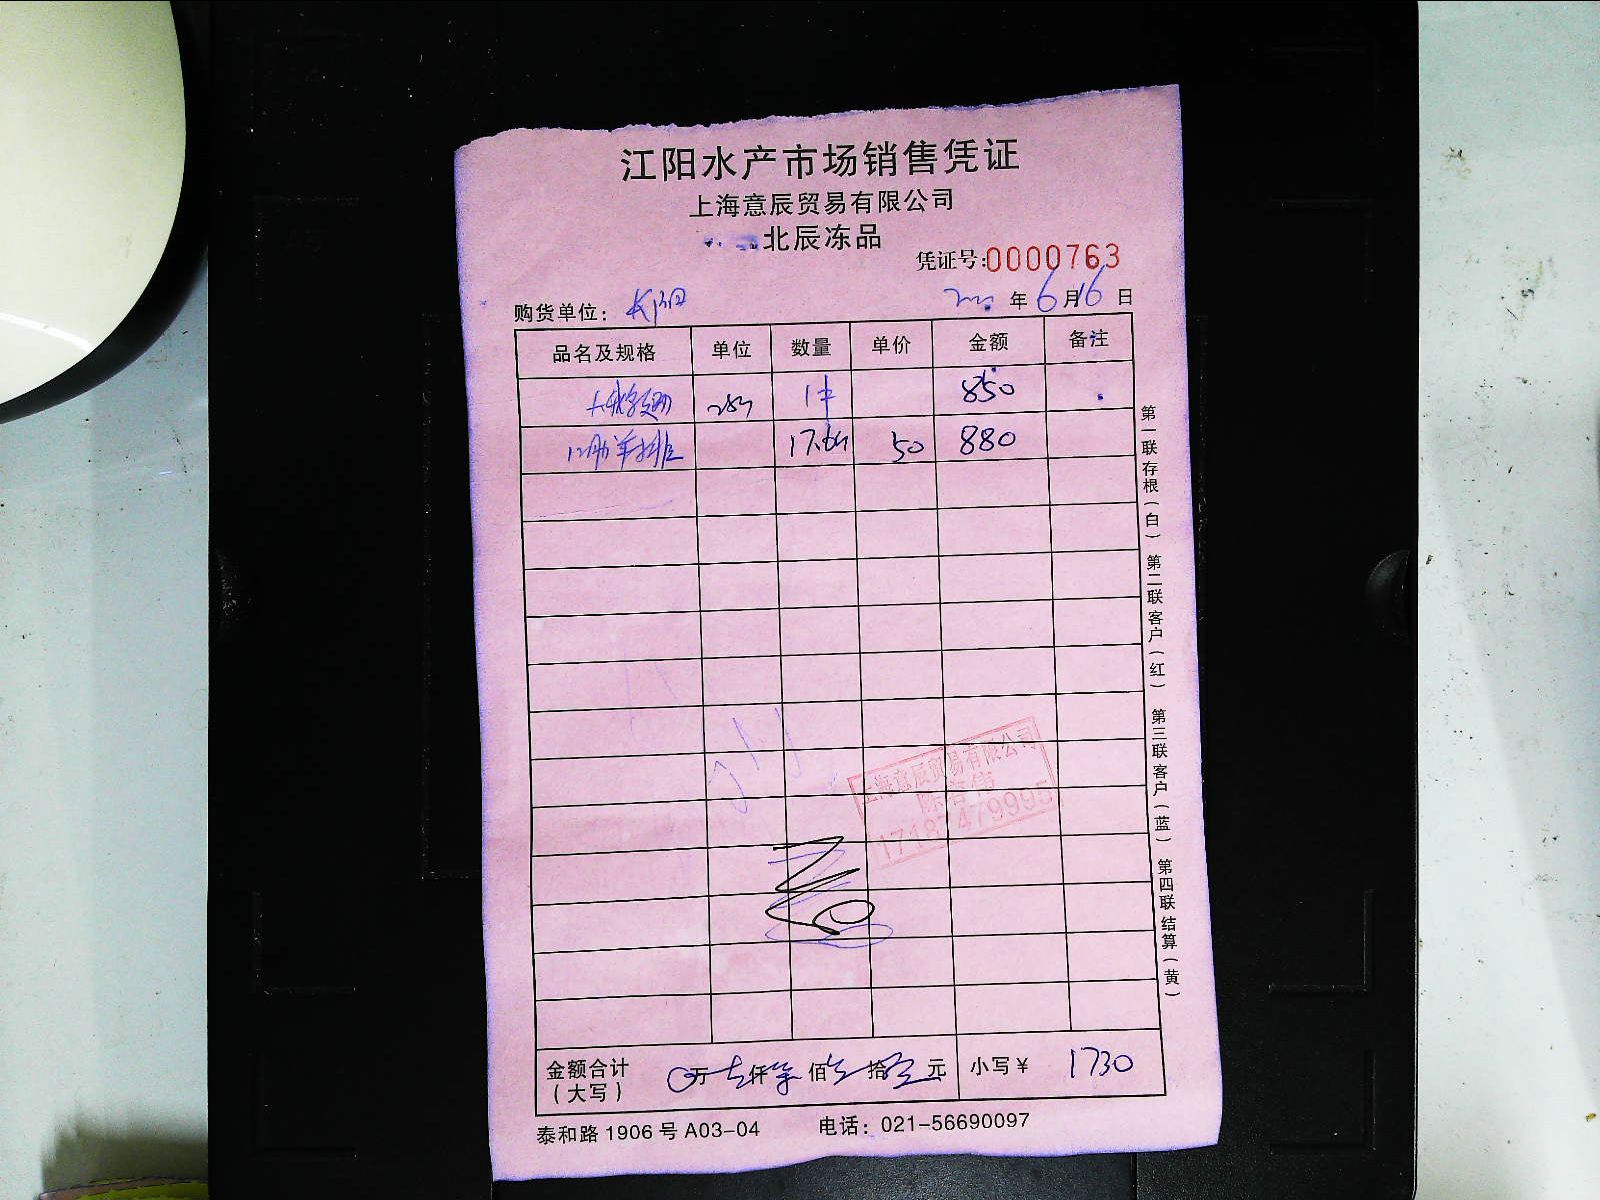 江阳水产市场销售凭证
上海意辰贸易有限公司
北辰冻品
凭证号:0000763
购货单位: 年6月16日
品名及规格 单位 数量 单价 金额 备注
850
羊排 50 880
第一联存根(白) 第二联客户(红) 第三联客户(蓝) 第四联结算(黄)
上海意辰贸易有限公司
17187479995
金额合计 万 仟 佰 拾 元 小写¥ 1730
(大写)
泰和路1906号A03-04 电话:021-56690097